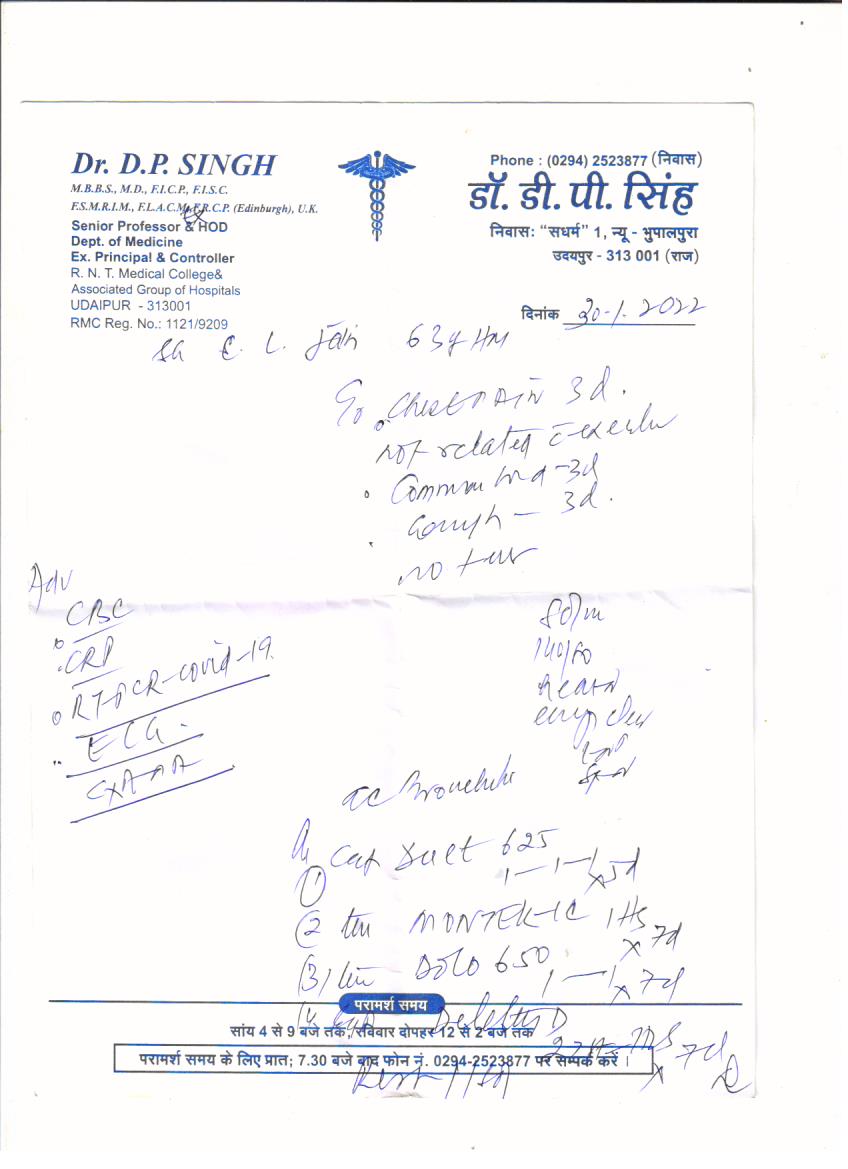 Dr. D.P. SINGH
M.B.B.S., M.D., F.I.C.P., F.I.S.C.
F.S.M.R.I.M., F.L.A.C.M., F.R.C.P. (Edinburgh), U.K.
Senior Professor & HOD
Dept. of Medicine
Ex. Principal & Controller
R. N. T. Medical College&
Associated Group of Hospitals
UDAIPUR - 313001
RMC Reg. No.: 1121/9209
Phone : (0294) 2523877 (निवास)
डॉ. डी. पी. सिंह
निवास: “सधर्म” 1, न्यू - भुपालपुरा
उदयपुर - 313 001 (राज)
दिनांक 30-1-2022
L. Jain 63y
Chest PAIN 3d.
not related
Common cold -3d
Cough - 3d.
no fever
Adv
CBC
CRP
RT-PCR-covid-19
ECG
80/m
140/80
ac Bronchitis
1) Cap 625
1-1-1 x 5d
2) MONTEK-LC 1 HS
x 7d
3) DOLO 650
x 7d
परामर्श समय
सांय 4 से 9 बजे तक, रविवार दोपहर 12 से 2 बजे तक
परामर्श समय के लिए प्रात; 7.30 बजे बाद फोन नं. 0294-2523877 पर सम्पर्क करें ।
x 7d